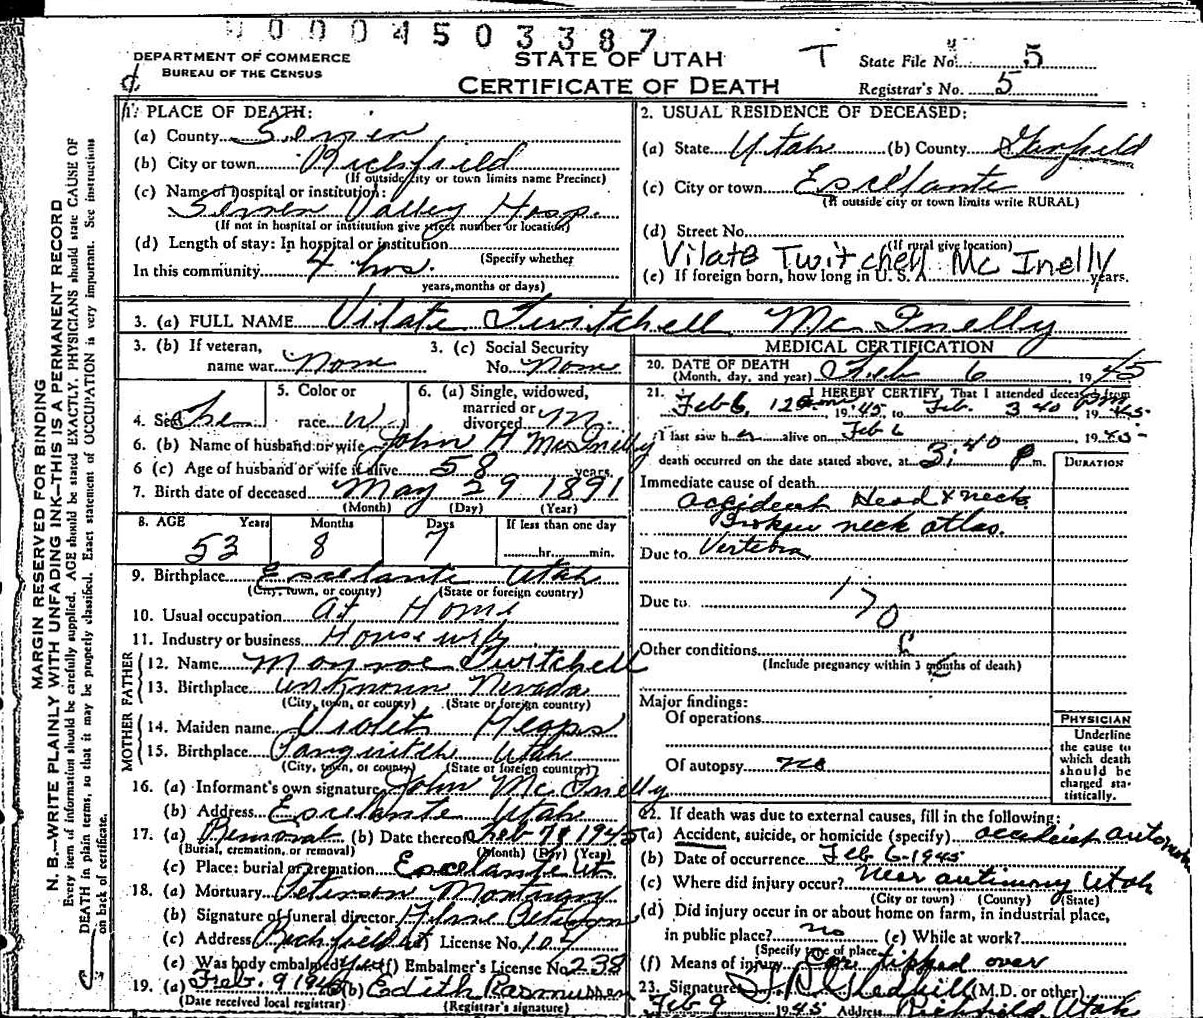 0 0 0 4 5 0 3 3 8 7
DEPARTMENT OF COMMERCE
BUREAU OF THE CENSUS
STATE OF UTAH
CERTIFICATE OF DEATH
T
State File No. 5
Registrar's No. 5
MARGIN RESERVED FOR BINDING
N. B.—WRITE PLAINLY WITH UNFADING INK—THIS IS A PERMANENT RECORD
Every item of information should be carefully supplied. AGE should be stated EXACTLY. PHYSICIANS should state CAUSE OF
DEATH in plain terms, so that it may be properly classified. Exact statement of OCCUPATION is very important. See instructions
on back of certificate.
1. PLACE OF DEATH:
(a) County Sevier
(b) City or town Richfield
(If outside city or town limits name Precinct)
(c) Name of hospital or institution:
Sevier Valley Hosp.
(If not in hospital or institution give street number or location)
(d) Length of stay: In hospital or institution
(Specify whether
In this community 4 hrs.
years, months or days)
2. USUAL RESIDENCE OF DECEASED:
(a) State Utah (b) County Garfield
(c) City or town Escellante
(If outside city or town limits write RURAL)
(d) Street No.
(If rural give location)
Vilate Twitchell Mc Inelly
(e) If foreign born, how long in U. S. A. years.
3. (a) FULL NAME Vilate Twitchell Mc Inelly
3. (b) If veteran,
name war None
3. (c) Social Security
No. None
4. Sex Fe
5. Color or
race W
6. (a) Single, widowed,
married or
divorced M
6. (b) Name of husband or wife John H McInelly
6 (c) Age of husband or wife if alive 58 years
7. Birth date of deceased May 29 1891
(Month) (Day) (Year)
8. AGE Years Months Days If less than one day
53 8 7 hr. min.
9. Birthplace Escelante Utah
(City, town, or county) (State or foreign country)
10. Usual occupation At Home
11. Industry or business House wife
FATHER
12. Name Monroe Twitchell
13. Birthplace unknown Nevada
(City, town, or county) (State or foreign country)
MOTHER
14. Maiden name Violet Heaps
15. Birthplace Panguitch Utah
(City, town, or county) (State or foreign country)
16. (a) Informant's own signature John Mc Inelly
(b) Address Escelante Utah
17. (a) Removal (b) Date thereof Feb 7 1945
(Burial, cremation, or removal) (Month) (Day) (Year)
(c) Place: burial or cremation Escelante Ut
18. (a) Mortuary Peterson Mortuary
(b) Signature of funeral director Peterson
(c) Address Richfield (d) License No. 107
(e) Was body embalmed yes (f) Embalmer's License No. 238
19. (a) Feb. 9 1945 (b) Edith Rasmussen
(Date received local registrar) (Registrar's signature)
MEDICAL CERTIFICATION
20. DATE OF DEATH
(Month, day, and year) Feb 6, 1945
21. I HEREBY CERTIFY, That I attended deceased from
Feb 6, 12 1945 to Feb. 3 40 pm 1945
I last saw her alive on Feb 6 1945
death occurred on the date stated above, at 3:40 P m.
DURATION
Immediate cause of death
accident Head & neck
Broken neck atlas.
Due to Vertebra
Due to
170
C
Other conditions
(Include pregnancy within 3 months of death)
Major findings:
Of operations
Of autopsy no
PHYSICIAN
Underline
the cause to
which death
should be
charged sta-
tistically.
22. If death was due to external causes, fill in the following:
(a) Accident, suicide, or homicide (specify) accident
(b) Date of occurrence Feb 6-1945
(c) Where did injury occur? Near antimony Utah
(City or town) (County) (State)
(d) Did injury occur in or about home on farm, in industrial place,
in public place? no (e) While at work?
(Specify type of place)
(f) Means of injury Car tipped over
23. Signature (M.D. or other)
Feb 9 1945 Address Richfield, Utah